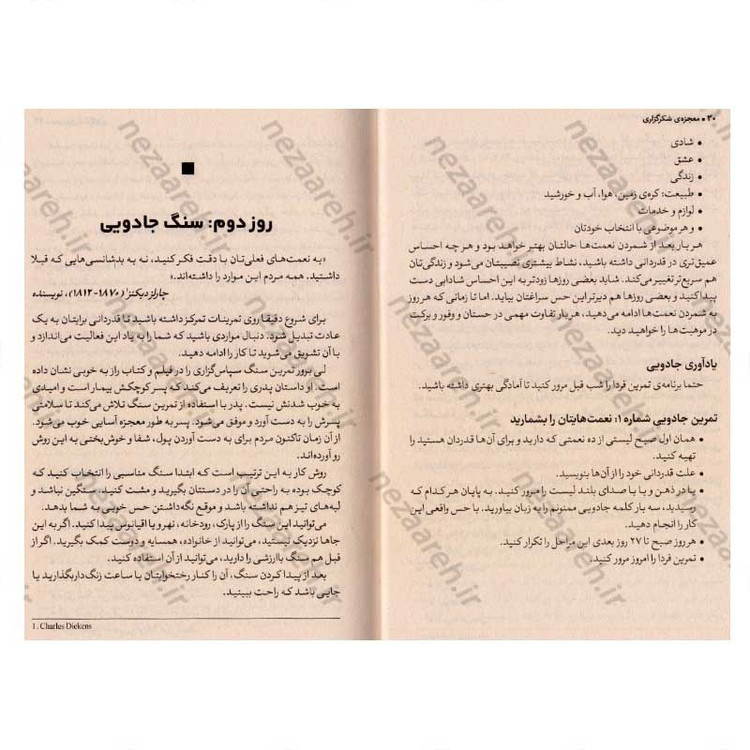 ۳۰ • معجزه‌ی شکرگزاری
• شادی
• عشق
• زندگی
• طبیعت: کره‌ی زمین، هوا، آب و خورشید
• لوازم و خدمات
• و هر موضوعی با انتخاب خودتان
هر بار بعد از شمردن نعمت‌ها حالتان بهتر خواهد بود و هر چه احساس
عمیق‌تری در قدردانی داشته باشید، نشاط بیشتری نصیبتان می‌شود و زندگی‌تان
هم سریع‌تر تغییر می‌کند. شاید بعضی روزها زودتر به این احساس شادابی دست
پیدا کنید و بعضی روزها هم دیرتر این حس سراغتان بیاید. اما تا زمانی که هر روز
به شمردن نعمت‌ها ادامه می‌دهید، هر بار تفاوت مهمی در حستان و وفور و برکت
در موهبت‌ها را خواهید دید.
یادآوری جادویی
حتما برنامه‌ی تمرین فردا را شب قبل مرور کنید تا آمادگی بهتری داشته باشید.
تمرین جادویی شماره ۱: نعمت‌هایتان را بشمارید
• همان اول صبح لیستی از ده نعمتی که دارید و برای آن‌ها قدردان هستید را
تهیه کنید.
• علت قدردانی خود را از آن‌ها بنویسید.
• یا در ذهن و یا با صدای بلند لیست را مرور کنید. به پایان هر کدام که
رسیدید، سه بار کلمه جادویی ممنونم را به زبان بیاورید. با حس واقعی این
کار را انجام دهید.
• هر روز صبح تا ۲۷ روز بعدی این مراحل را تکرار کنید.
• تمرین فردا را امروز مرور کنید.
■
روز دوم: سنگ جادویی
«به نعمت‌های فعلی‌تان با دقت فکر کنید، نه به بدشانسی‌هایی که قبلا
داشتید. همه مردم این موارد را داشته‌اند.»
چارلز دیکنز¹ (۱۸۷۰-۱۸۱۲)، نویسنده
برای شروع دقیقا روی تمرینات تمرکز داشته باشید تا قدردانی برایتان به یک
عادت تبدیل شود. دنبال مواردی باشید که شما را به یاد این فعالیت می‌اندازد و
با آن تشویق می‌شوید تا کار را ادامه دهید.
لی برور تمرین سنگ سپاس‌گزاری را در فیلم و کتاب راز به خوبی نشان داده
است. او داستان پدری را تعریف می‌کند که پسر کوچکش بیمار است و امیدی
به خوب شدنش نیست. پدر با استفاده از تمرین سنگ تلاش می‌کند تا سلامتی
پسرش را به دست آورد و موفق می‌شود. پسر به طور معجزه آسایی خوب می‌شود.
از آن زمان تاکنون مردم برای به دست آوردن پول، شفا و خوش‌بختی به این روش
رو آورده‌اند.
روش کار به این ترتیب است که ابتدا سنگ مناسبی را انتخاب کنید که
کوچک بوده به راحتی آن را در دستتان بگیرید و مشت کنید. سنگین نباشد و
لبه‌های تیز هم نداشته باشد و موقع نگه‌داشتن حس خوبی به شما بدهد.
می‌توانید این سنگ را از پارک، رودخانه، نهر و یا اقیانوس پیدا کنید. اگر به این
جاها نزدیک نیستید، می‌توانید از خانواده، همسایه و دوست کمک بگیرید. اگر از
قبل هم سنگ باارزشی را دارید، می‌توانید از آن استفاده کنید.
بعد از پیدا کردن سنگ، آن را کنار رختخوابتان یا ساعت زنگ‌دار بگذارید یا
جایی باشد که راحت ببینید.
1. Charles Dickens
nezaareh.ir